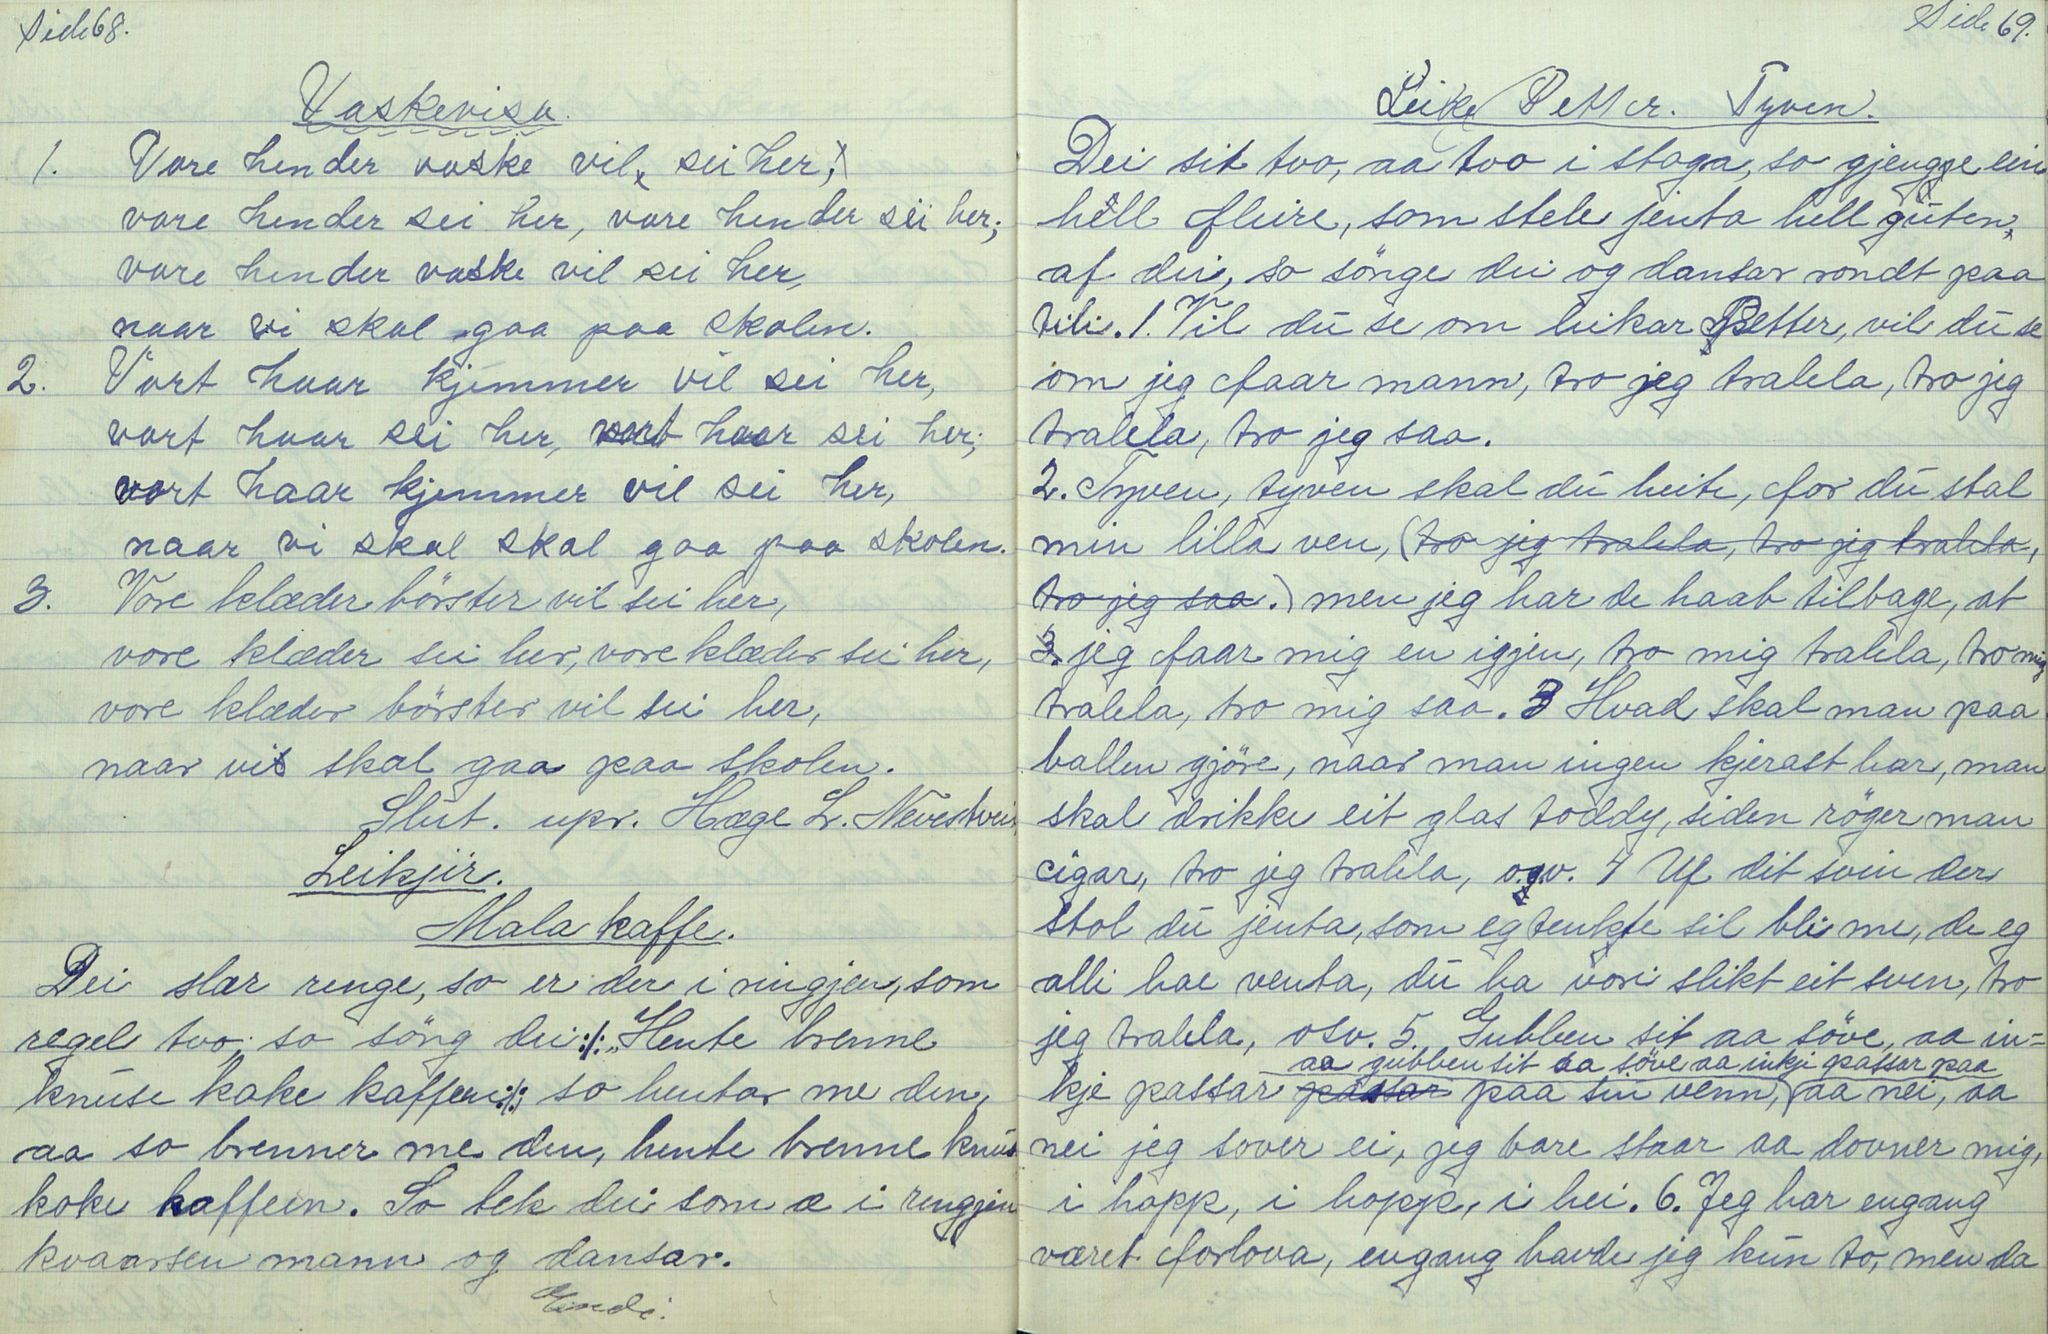 Side 68.
Vaskevisa.
1. Vore hender vaske vil, sei her,
vore hender sei her, vore hender sei her;
vore hender vaske vil sei her,
naar vi skal gaa paa skolen.
2. Vort haar kjemmer vil sei her,
vort haar sei her, vort haar sei her;
vort haar kjemmer vil sei her,
naar vi skal skal gaa paa skolen.
3. Vore klæder börster vil sei her,
vore klæder sei her, vore klæder sei her,
vore klæder börster vil sei her,
naar vi skal gaa paa skolen.
Slut. upr. Hæge L. Nevestveit
Leikjir.
Mala kaffe.
Dei slær renge, so er der i ringjen, som
regel tvo; so söng dei :/: "Hente brenne
knuse koke kaffien :/: so hentar me den,
aa so brenner me den, hente brenne knus
koke kaffeen. So tek dei som æ i rengjen
kvaarsen mann og dansar.
Endi.
Side 69.
Leike Petter. Tyven.
Dei sit tvo, aa tvo i stoga, so gjenge ein
hell fleire, som stele jenta hell guten,
af dei, so sönge dei og dansar rondt paa
tili. 1. Vil du se om leikar Petter, vil du se
om jeg faar mann, tro jeg tralela, tro jeg
tralela, tro jeg saa.
2. Tyven, tyven skal du heite, for du stal
min lilla ven, (tro jeg tralela, tro jeg tralela,
tro jeg saa.) men jeg har de haab tilbage, at
3. jeg faar mig en igjen, tro mig tralela, tro mig
tralela, tro mig saa. 3 Hvad skal man paa
ballen gjöre, naar man ingen kjerast har, man
skal drikke eit glas toddy, siden röger man
cigar, tro jeg tralela, o.s.v. 4 Uf dit svin der
stol du jenta, som eg tenkte sil bli me, de eg
alli hae venta, du ha vori slikt eit sven, tro
jeg tralela, osv. 5. Gubben sit aa söve, aa in=
aa gubben sit aa söve aa inkje passar paa
kje passar passar paa sin venn, aa nei, aa
nei jeg sover ei, jeg bare staar aa dovner mig,
i hopp, i hopp, i hei. 6. Jeg har engang
været forlova, engang havde jeg kun to, men da